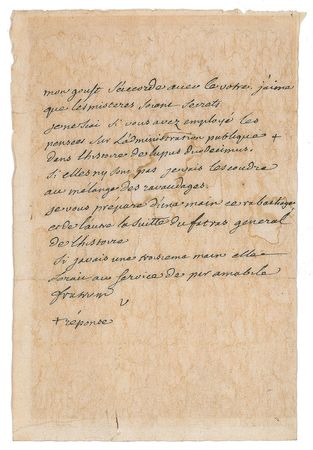 mon goust s'accorde avec le votre. j'aime
que les misteres soient secrets
je ne scai si vous avez employé les
pensées sur l'administration publique +
dans l'histoire de lupus duodecimus.
si elles ny sont pas je vais les coudre
au mélange des ravaudages.
je vous prepare d'une main ce rabachage
et de l'autre la suitte du fatras general
de l'histoire
si j'avais une troisieme main elle
serait au service de per amabile
fratrum
V
+ réponse